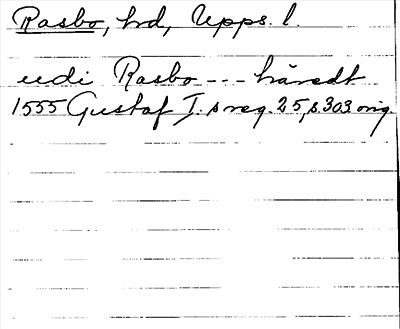 Rasbo, hd, Upps. l.
udi Rasbo --- häredt
1555 Gustaf I.s reg. 25, s. 303 orig.